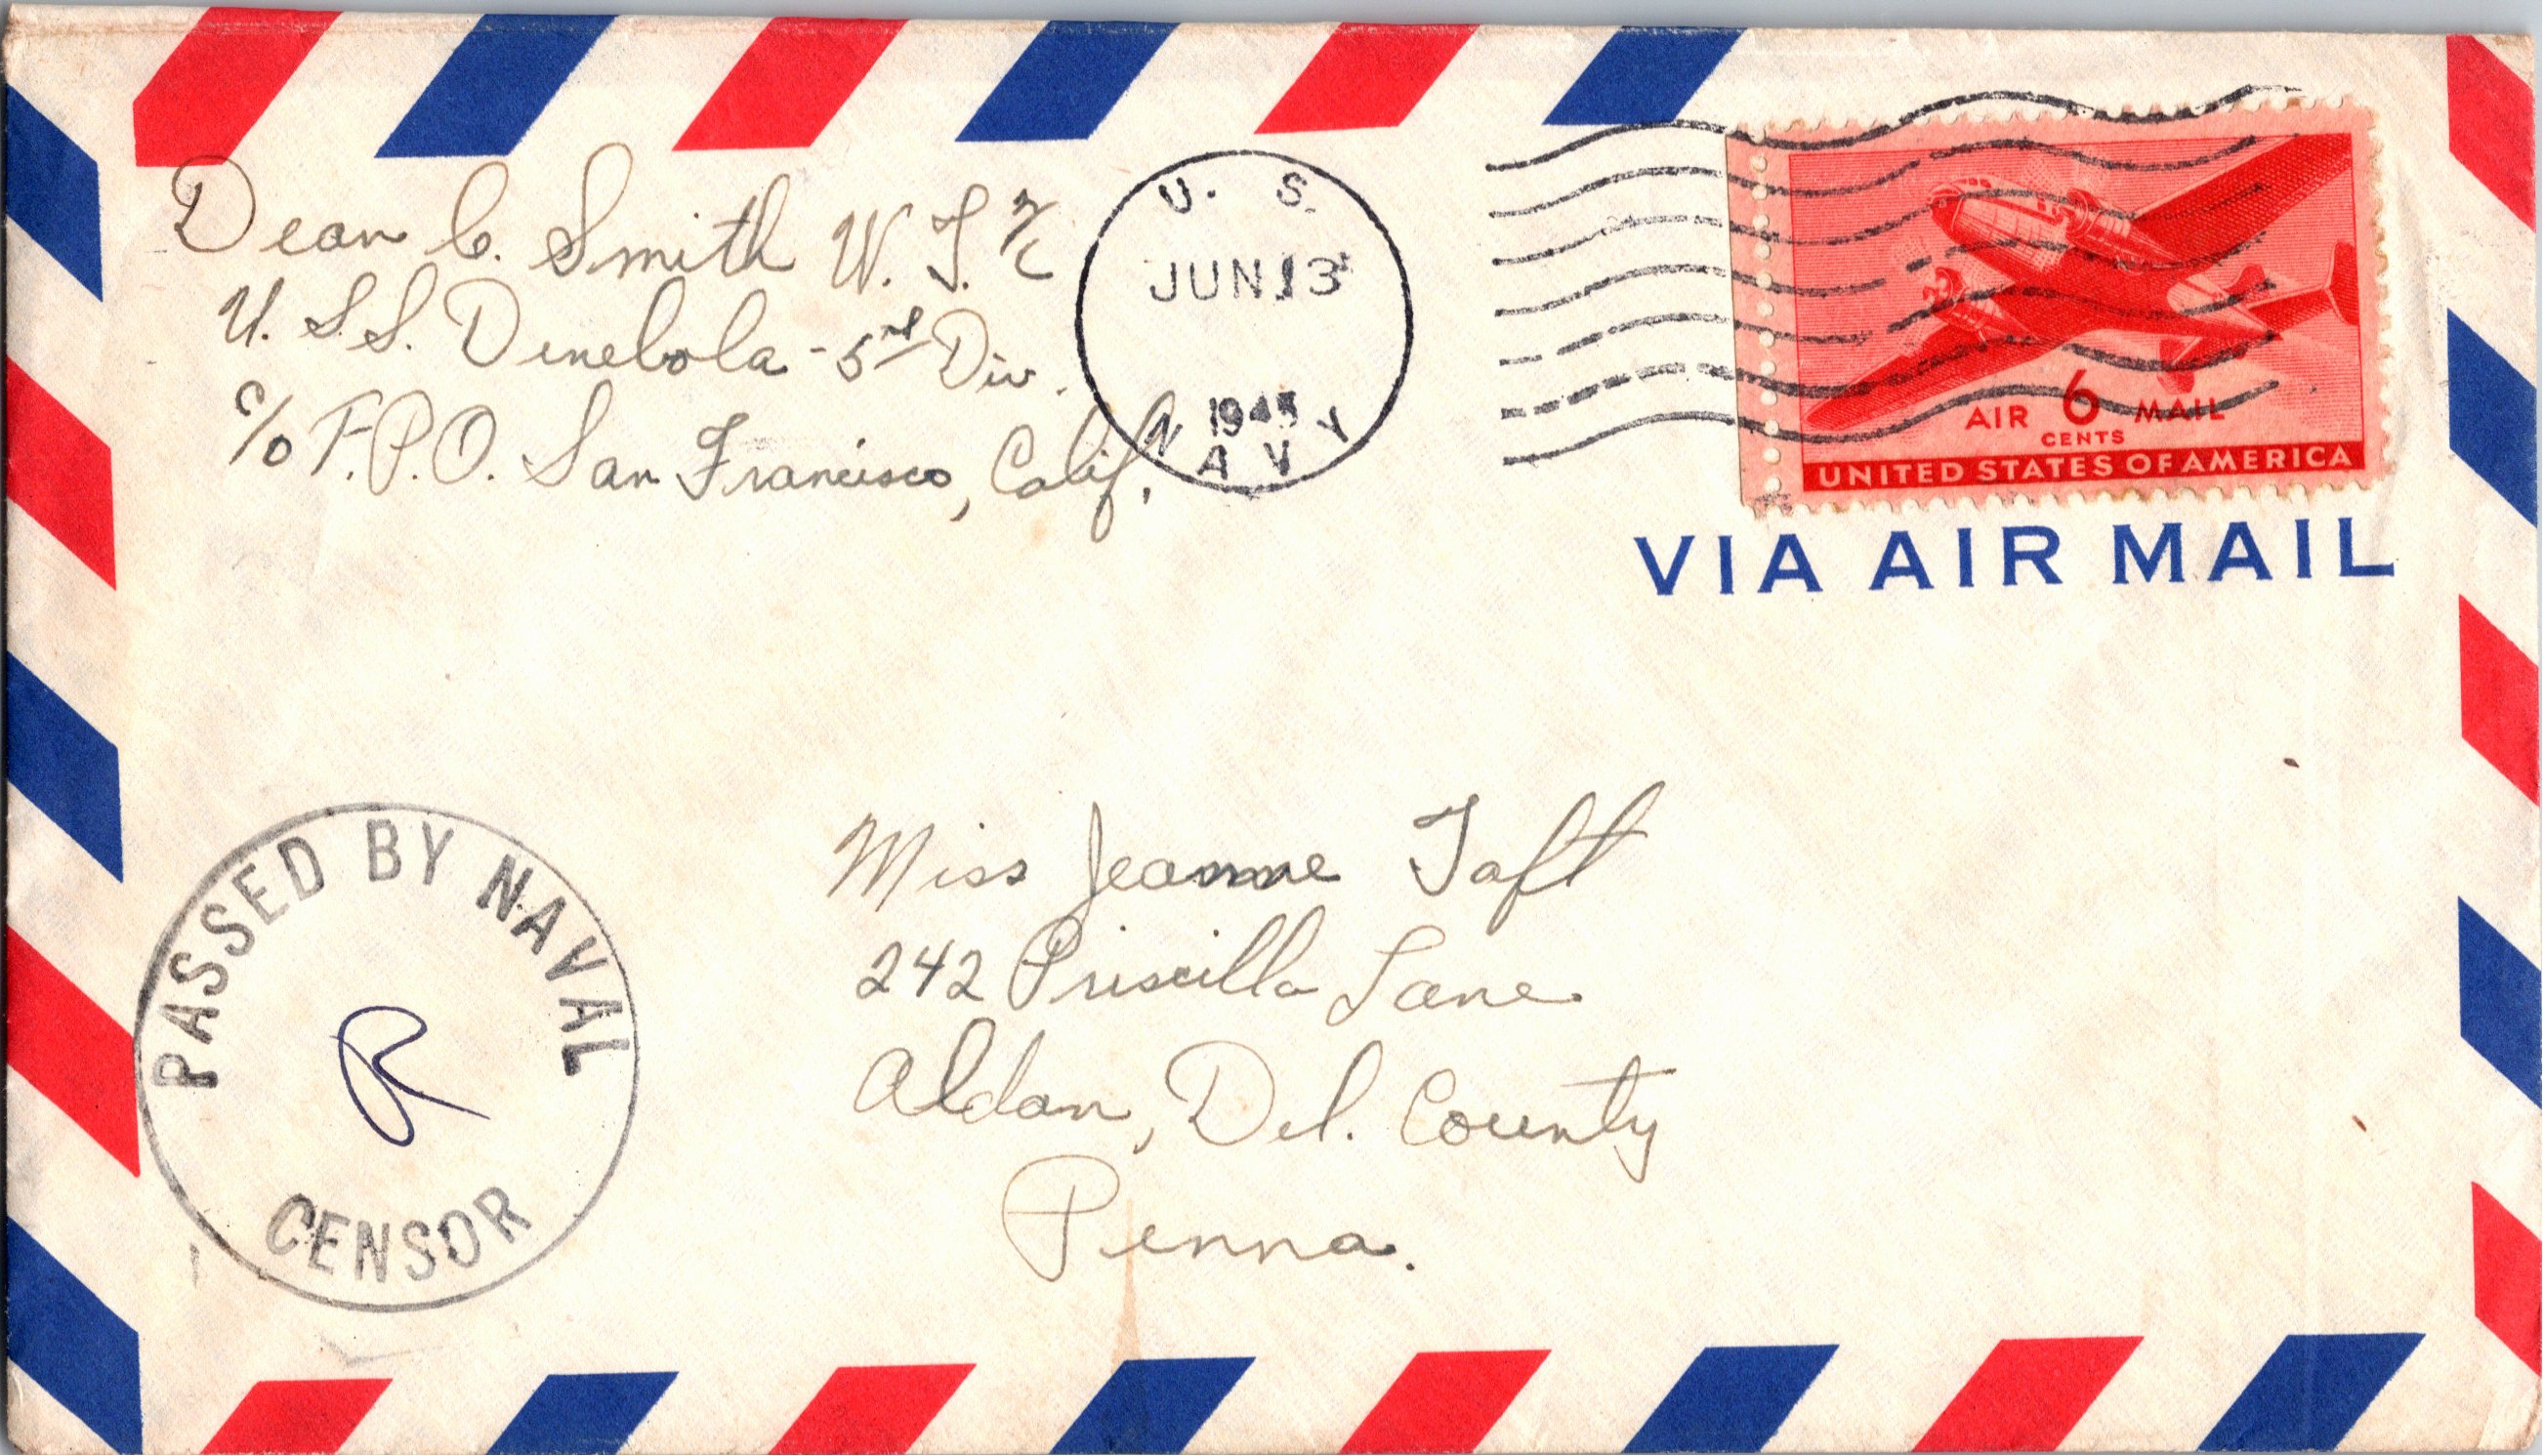 Dean C. Smith W.T. 2/c
U.S.S. Denebola - 5th Div.
c/o F.P.O. San Francisco, Calif.
U. S.
JUN 13
1945
NAVY
AIR 6 MAIL
CENTS
UNITED STATES OF AMERICA
VIA AIR MAIL
PASSED BY NAVAL
R
CENSOR
Miss Jeanne Taft
242 Priscilla Lane
Aldan, Del. County
Penna.